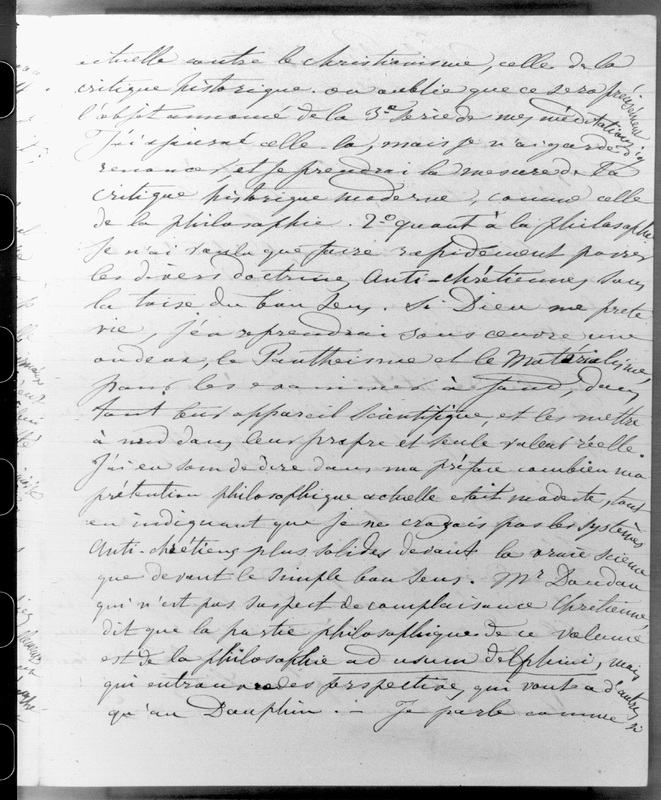 ctuelle contre le christianisme, celle de la
critique historique. on oublie que ce sera précisément
l'objet annoncé de la 3e série de mes méditations.
J'ai ajourné celle là, mais je n'ai garde d'y
renoncer, et je prendrai la mesure de la
critique historique moderne, comme celle
de la philosophie. 2o quant à la philosophie
je n'ai voulu que faire rapidement passer
les divers doctrines anti-chrétiennes sous
la toise du bon sens. Si Dieu me prete
vie, j'en reprendrai sous œuvre une
ou deux, le Pantheisme et le Matérialisme,
pour les examiner à fond, dans
tout leur appareil scientifique, et les mettre
à nud dans leur propre et seule valeur réelle.
J'ai eu soin de dire dans ma préface combien ma
prétention philosophique actuelle etait modeste, tout
en indiquant que je ne croyais pas les systèmes
anti-chrétiens plus solides devant la vraie science
que devant le simple bon sens. Mr Doudan
qui n'est pas suspect de complaisance chrétienne,
dit que la partie philosophique de ce volume
est de la philosophie ad usum delphini, mais
qui entrouvre des perspectives qui vont à d'autres
qu'au Dauphin. – Je parle comme si